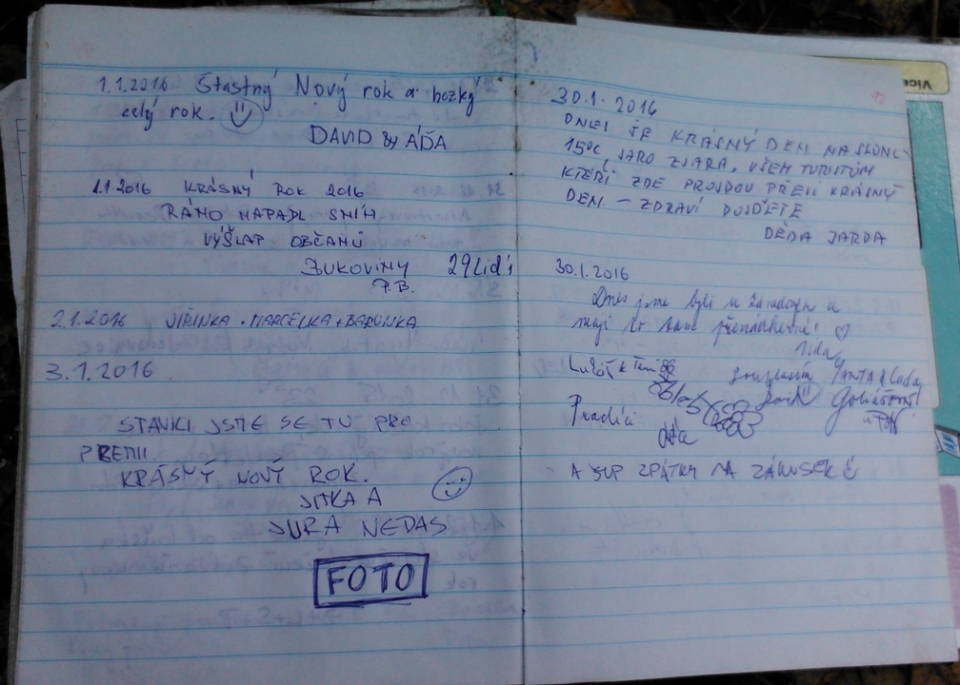 1.1.2016 Štastný Nový rok a hezký
celý rok.
DAVID & ÁĎA
1.1.2016 KRÁSNÝ ROK 2016
RÁNO NAPADL SNÍH
VÝŠLAP OBČANŮ
BUKOVINY 29 lidí
P.B.
2.1.2016 JIŘINKA + MARCELKA + BARUNKA
3.1.2016
STAVILI JSME SE TU PRO
PREMII
KRÁSNÝ NOVÝ ROK.
JITKA A
JURA NEDAS
FOTO
30.1. 2016
DNES JE KRÁSNÝ DEN NA SLUNC
15°C, JARO ZJARA, VŠEM TURISTŮM
KTEŘÍ ZDE PROJDOU PŘEJI KRÁSNÝ
DEN. - ZDRAVÍ DOJDĚTE
DĚDA JARDA
30.1.2016
Dnes jsme byli u a
mají to tam přenádherné!
Pradědi
A ŠUP ZPÁTKY NA ZÁKUSEK
Vice